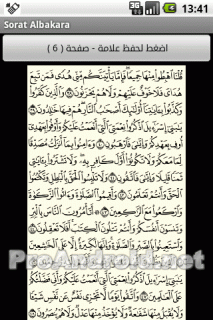 13:41
Sorat Albakara
اضغط لحفظ علامة - صفحة ( 6 )
قُلْنَا ٱهْبِطُوا۟ مِنْهَا جَمِيعًا فَإِمَّا يَأْتِيَنَّكُم مِّنِّى هُدًى فَمَن تَبِعَ
هُدَاىَ فَلَا خَوْفٌ عَلَيْهِمْ وَلَا هُمْ يَحْزَنُونَ ٣٨ وَٱلَّذِينَ كَفَرُوا۟
وَكَذَّبُوا۟ بِـَٔايَٰتِنَآ أُو۟لَٰٓئِكَ أَصْحَٰبُ ٱلنَّارِ هُمْ فِيهَا خَٰلِدُونَ ٣٩
يَٰبَنِىٓ إِسْرَٰٓءِيلَ ٱذْكُرُوا۟ نِعْمَتِىَ ٱلَّتِىٓ أَنْعَمْتُ عَلَيْكُمْ وَأَوْفُوا۟ بِعَهْدِىٓ
أُوفِ بِعَهْدِكُمْ وَإِيَّٰىَ فَٱرْهَبُونِ ٤٠ وَءَامِنُوا۟ بِمَآ أَنزَلْتُ مُصَدِّقًا
لِّمَا مَعَكُمْ وَلَا تَكُونُوٓا۟ أَوَّلَ كَافِرٍۭ بِهِۦ وَلَا تَشْتَرُوا۟ بِـَٔايَٰتِى
ثَمَنًا قَلِيلًا وَإِيَّٰىَ فَٱتَّقُونِ ٤١ وَلَا تَلْبِسُوا۟ ٱلْحَقَّ بِٱلْبَٰطِلِ وَتَكْتُمُوا۟
ٱلْحَقَّ وَأَنتُمْ تَعْلَمُونَ ٤٢ وَأَقِيمُوا۟ ٱلصَّلَوٰةَ وَءَاتُوا۟ ٱلزَّكَوٰةَ
وَٱرْكَعُوا۟ مَعَ ٱلرَّٰكِعِينَ ٤٣ أَتَأْمُرُونَ ٱلنَّاسَ بِٱلْبِرِّ
وَتَنسَوْنَ أَنفُسَكُمْ وَأَنتُمْ تَتْلُونَ ٱلْكِتَٰبَ أَفَلَا تَعْقِلُونَ ٤٤
وَٱسْتَعِينُوا۟ بِٱلصَّبْرِ وَٱلصَّلَوٰةِ وَإِنَّهَا لَكَبِيرَةٌ إِلَّا عَلَى ٱلْخَٰشِعِينَ
٤٥ ٱلَّذِينَ يَظُنُّونَ أَنَّهُم مُّلَٰقُوا۟ رَبِّهِمْ وَأَنَّهُمْ إِلَيْهِ رَٰجِعُونَ ٤٦
يَٰبَنِىٓ إِسْرَٰٓءِيلَ ٱذْكُرُوا۟ نِعْمَتِىَ ٱلَّتِىٓ أَنْعَمْتُ عَلَيْكُمْ وَأَنِّى فَضَّلْتُكُمْ
عَلَى ٱلْعَٰلَمِينَ ٤٧ وَٱتَّقُوا۟ يَوْمًا لَّا تَجْزِى نَفْسٌ عَن نَّفْسٍ شَيْـًٔا
وَلَا يُقْبَلُ مِنْهَا شَفَٰعَةٌ وَلَا يُؤْخَذُ مِنْهَا عَدْلٌ وَلَا هُمْ يُنصَرُونَ ٤٨